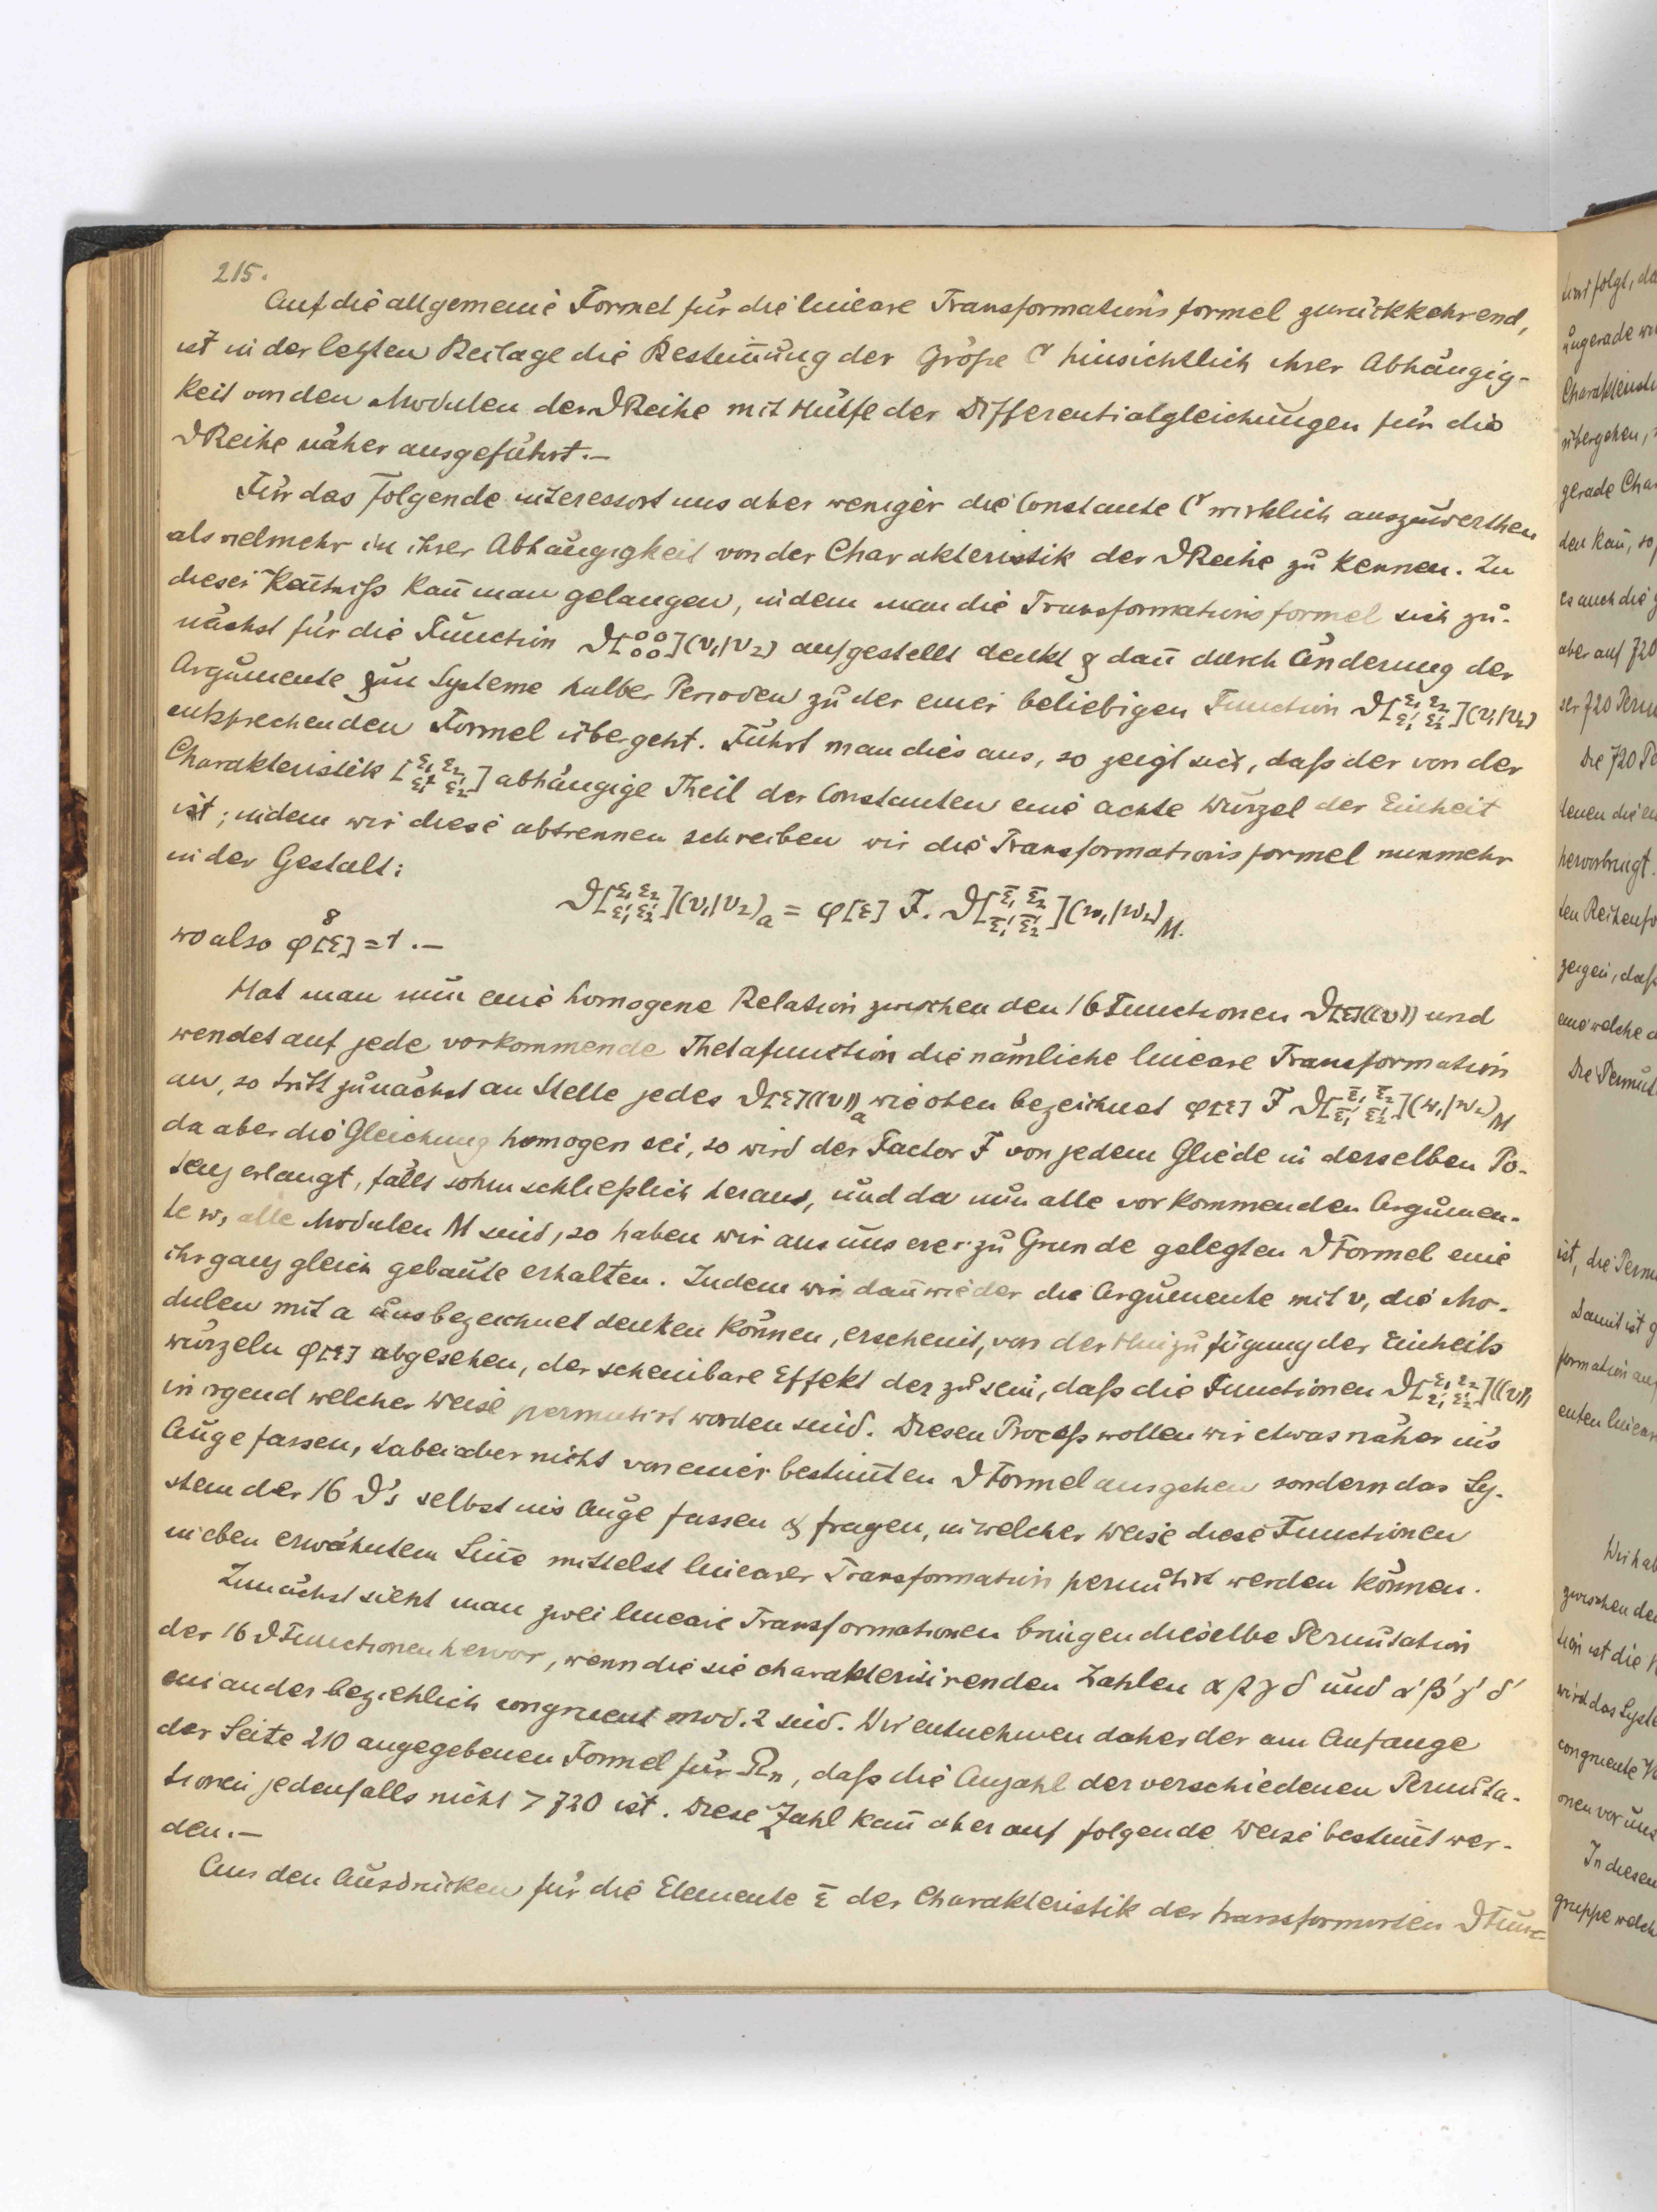 215.
Auf die allgemeine Formel für die lineare Transformationsformel zurückkehrend,
ist in der letzten Beilage die Bestim̄ung der Größe C hinsichtlich ihrer Abhängig-
keit von den Modulen der ϑReihe mit Hülfe der Differentialgleichungen für die
ϑReihe näher ausgeführt.—
Für das Folgende interessirt uns aber weniger die Constante C wirklich auszuwerthen
als vielmehr in ihrer Abhängigkeit von der Charakteristik der ϑReihe zu kennen. Zu
dieser Ken̄tniß kan̄ man gelangen, indem man die Transformationsformel sich zu-
nächst für die Function ϑ[0 0 / 0 0](v₁|v₂) aufgestellt denkt & dan̄ durch Änderung der
Argumente um Systeme halber Perioden zu der einer beliebigen Function ϑ[ε₁ ε₂ / ε₁' ε₂'](v₁|v₂)
entsprechenden Formel übergeht. Führt man dies aus, so zeigt sich, daß der von der
Charakteristik [ε₁ ε₂ / ε₁' ε₂'] abhängige Theil der Constanten eine achte Wurzel der Einheit
ist; indem wir diese abtrennen schreiben wir die Transformationsformel nunmehr
in der Gestalt:
ϑ[ε₁ ε₂ / ε₁' ε₂'](v₁|v₂)ₐ = φ[ε] F. ϑ[ε̄₁ ε̄₂ / ε̄₁' ε̄₂'](w₁|w₂)_M.
wo also φ⁸[ε] = 1.—
Hat man nun eine homogene Relation zwischen den 16 Functionen ϑ[ε]((v)) und
wendet auf jede vorkommende Thetafunction die nämliche lineare Transformation
an, so tritt zunächst an Stelle jedes ϑ[ε]((v))ₐ wie oben bezeichnet φ[ε] F ϑ[ε̄₁ ε̄₂ / ε̄₁' ε̄₂'](w₁|w₂)_M
da aber die Gleichung homogen sei, so wird der Factor F von jedem Gliede in derselben Po-
tenz erlangt, fällt sohin schließlich heraus, und da nun alle vorkommenden Argumen-
te w, alle Modulen M sind, so haben wir aus unserer zu Grunde gelegten ϑFormel eine
ihr ganz gleich gebaute erhalten. Indem wir dan̄ wieder die Argumente mit v, die Mo-
dulen mit a uns bezeichnet denken können, erscheint, von der Hinzufügung der Einheits
wurzeln φ[ε] abgesehen, der scheinbare Effekt der zu sein, daß die Functionen ϑ[ε₁ ε₂ / ε₁' ε₂']((v))
in irgend welcher Weise permutirt worden sind. Diesen Proceß wollen wir etwas näher in's
Auge fassen, dabei aber nicht von einer bestim̄ten ϑFormel ausgehen sondern das Sy-
stem der 16 ϑ's selbst ins Auge fassen & fragen, in welcher Weise diese Functionen
in eben erwähntem Sin̄e mittelst linearer Transformation permutirt werden können.
Zunächst sieht man zwei lineare Transformationen bringen dieselbe Permutation
der 16 ϑFunctionen hervor, wenn die sie charakterisirenden Zahlen α β γ δ und α' β' γ' δ'
einander beziehlich congruent mod. 2 sind. Wir entnehmen daher der am Anfange
der Seite 210 angegebenen Formel für Rₙ, daß die Anzahl der verschiedenen Permuta-
tionen jedenfalls nicht > 720 ist. Diese Zahl kan̄ aber auf folgende Weise bestim̄t wer-
den.—
Aus den Ausdrücken für die Elemente ε̄ der Charakteristik der transformirten ϑFunc-